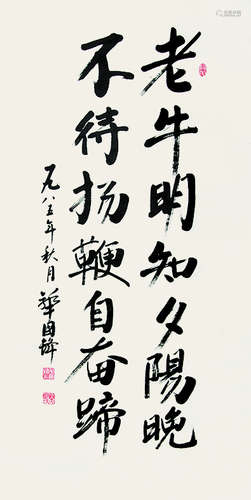 老牛明知夕陽晚
不待扬鞭自奋蹄
一九八五年秋月
華国鋒